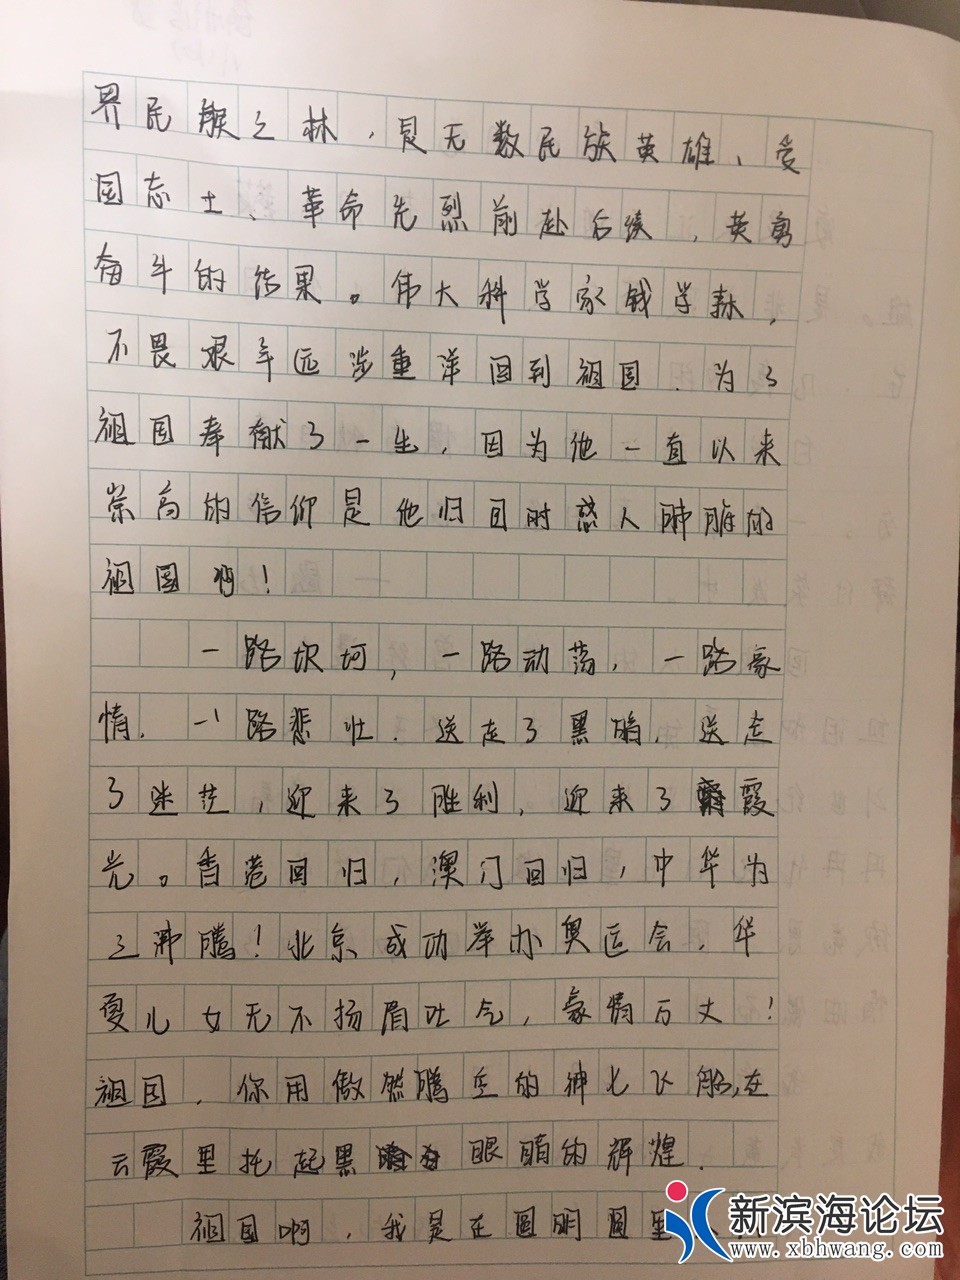 界民族之林，是无数民族英雄、爱
国志士、革命先烈前赴后续，英勇
奋斗的结果。伟大科学家钱学森，
不畏艰辛远涉重洋回到祖国，为了
祖国奉献了一生，因为他一直以来
崇高的信仰是他归回时感人肺腑的
祖国啊！
一路坎坷，一路动荡，一路豪
情，一路悲壮．送走了黑暗，送走
了迷茫，迎来了胜利，迎来了霞
光。香港回归，澳门回归，中华为
之沸腾！北京成功举办奥运会，华
夏儿女无不扬眉吐气，豪情万丈！
祖国，你用傲然腾空的神七飞船,在
云霞里托起黑眼睛的辉煌．
祖国啊，我是在圆明圆里
新滨海论坛
www.xbhwang.com